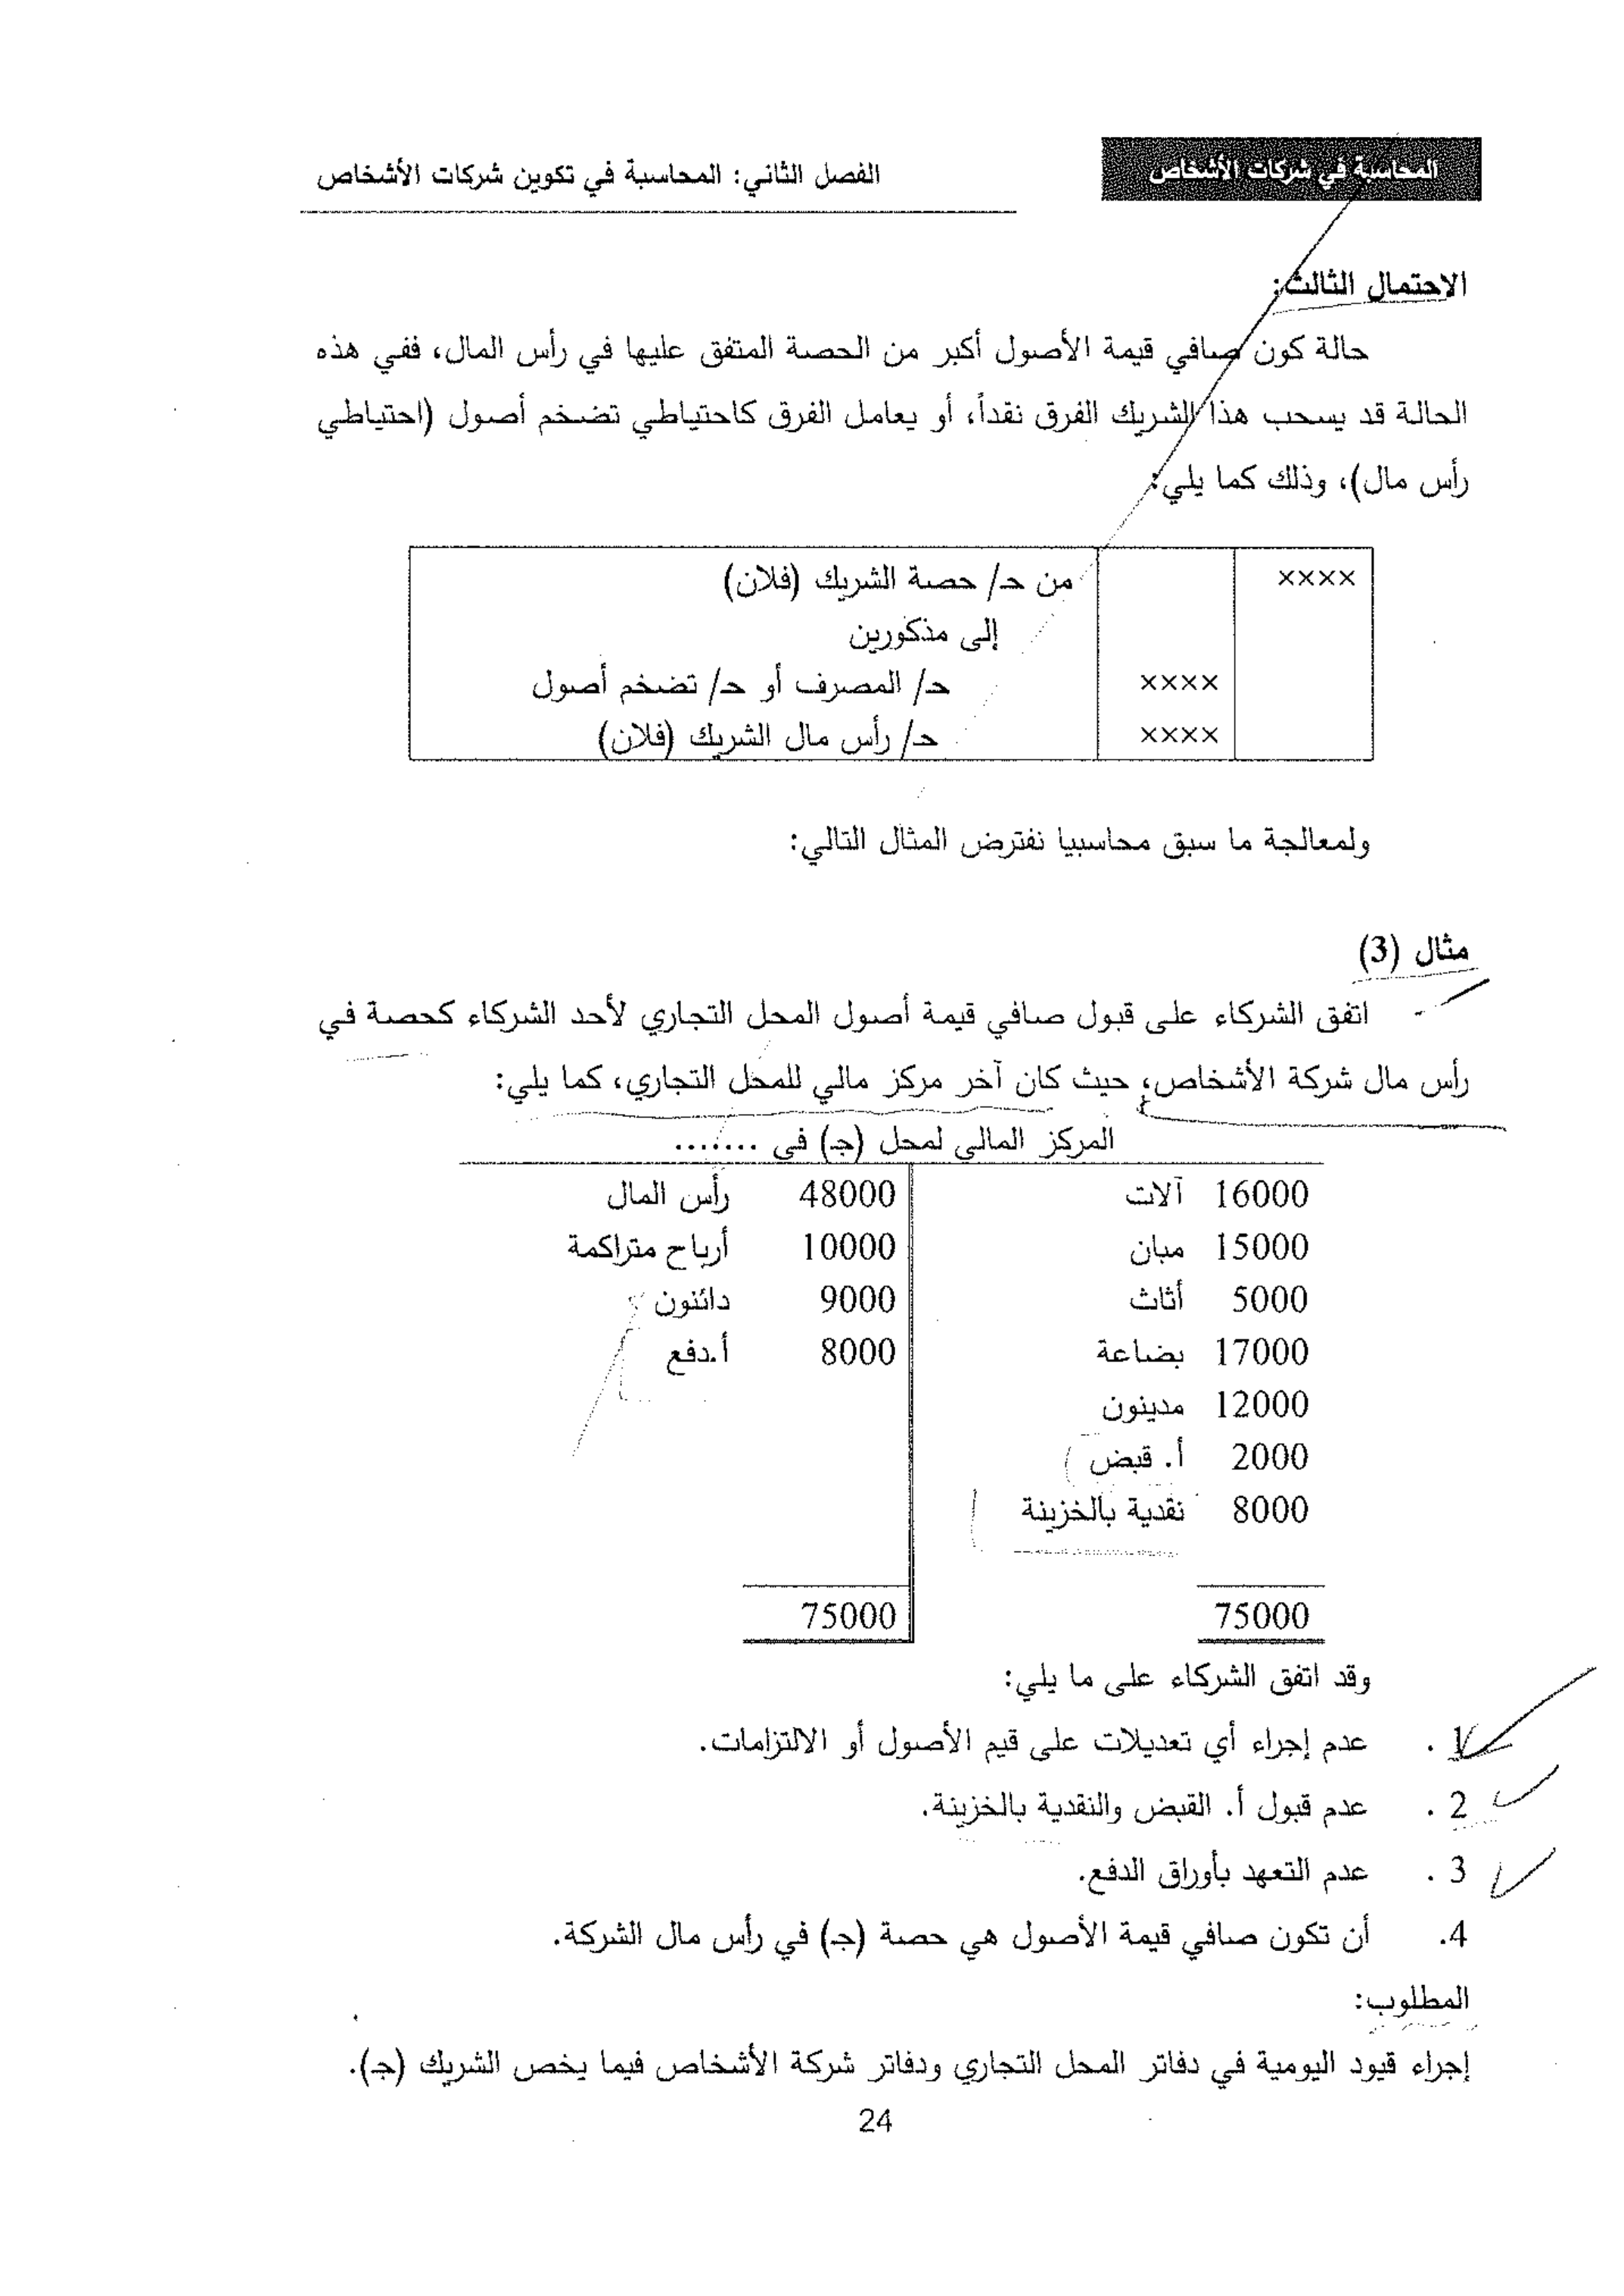 المحاسبة في شركات الأشخاص
الفصل الثاني: المحاسبة في تكوين شركات الأشخاص
الاحتمال الثالث:
حالة كون صافي قيمة الأصول أكبر من الحصة المتفق عليها في رأس المال، ففي هذه
الحالة قد يسحب هذا الشريك الفرق نقداً، أو يعامل الفرق كاحتياطي تضخم أصول (احتياطي
رأس مال)، وذلك كما يلي:
×××× من حـ/ حصة الشريك (فلان)
إلى مذكورين
×××× حـ/ المصرف أو حـ/ تضخم أصول
×××× حـ/ رأس مال الشريك (فلان)
ولمعالجة ما سبق محاسبيا نفترض المثال التالي:
مثال (3)
اتفق الشركاء على قبول صافي قيمة أصول المحل التجاري لأحد الشركاء كحصة في
رأس مال شركة الأشخاص، حيث كان آخر مركز مالي للمحل التجاري، كما يلي:
المركز المالي لمحل (جـ) في .......
16000 آلات 48000 رأس المال
15000 مبان 10000 أرباح متراكمة
5000 أثاث 9000 دائنون
17000 بضاعة 8000 أ.دفع
12000 مدينون
2000 أ. قبض
8000 نقدية بالخزينة
75000 75000
وقد اتفق الشركاء على ما يلي:
1 . عدم إجراء أي تعديلات على قيم الأصول أو الالتزامات.
2 . عدم قبول أ. القبض والنقدية بالخزينة.
3 . عدم التعهد بأوراق الدفع.
4. أن تكون صافي قيمة الأصول هي حصة (جـ) في رأس مال الشركة.
المطلوب:
إجراء قيود اليومية في دفاتر المحل التجاري ودفاتر شركة الأشخاص فيما يخص الشريك (جـ).
24